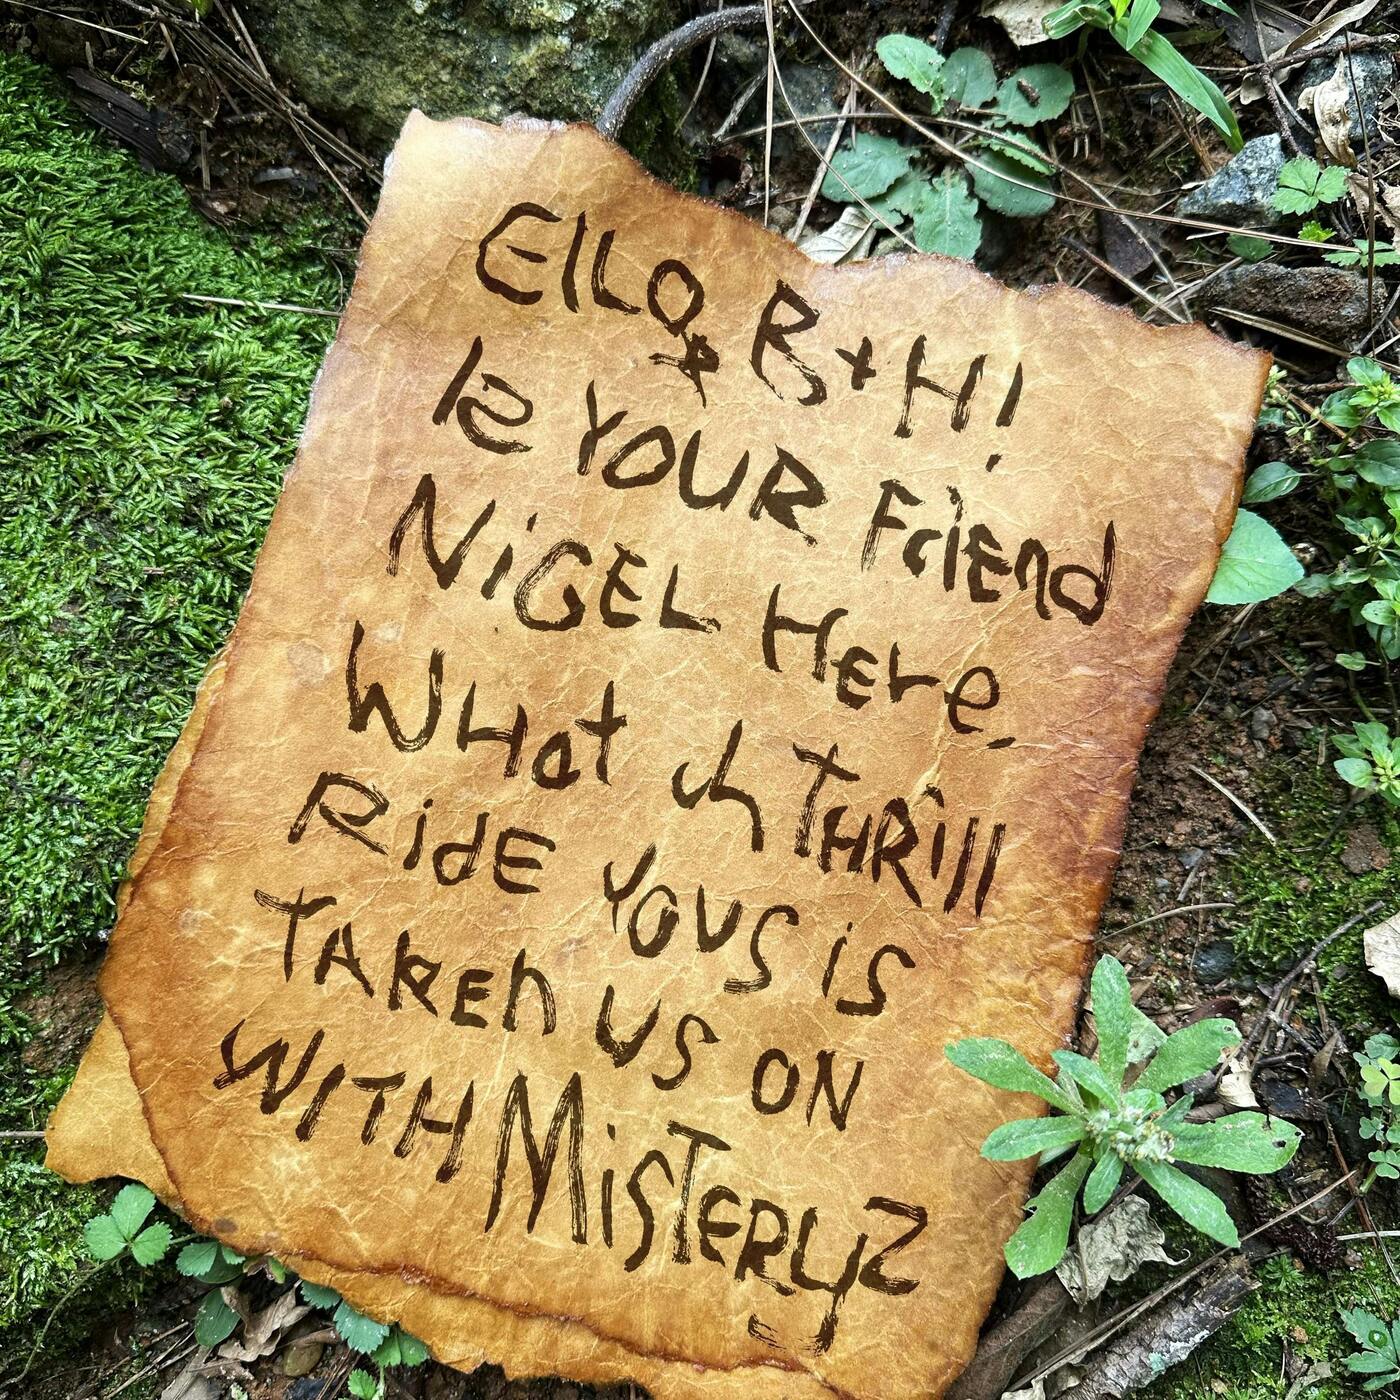 EllO, B+H!
Iz YOUR FriEnd
NiGEL HEre,
WHat uh THRill
RidE YOUS iS
TAKEn US ON
WITH MiSTERYZ